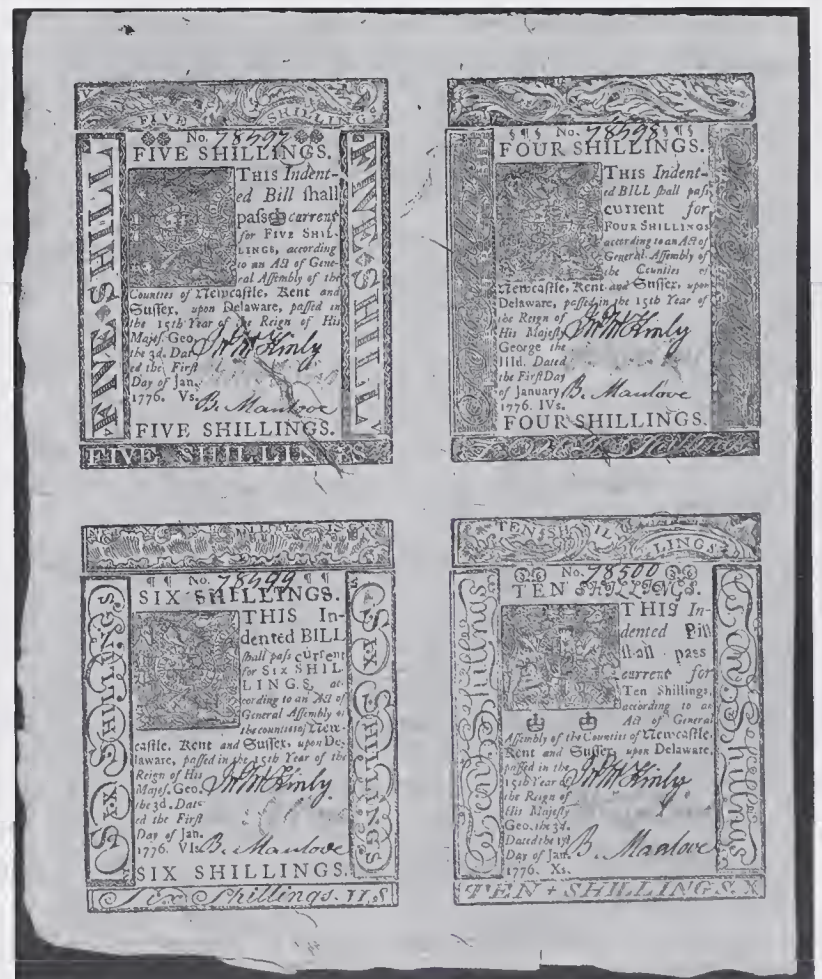 FIVE SHILLINGS
No. 78597
FIVE SHILLINGS.
FIVE SHILL
FIVE SHILL
THIS Indent-
ed Bill ſhall
paſs current
for FIVE SHIL-
LINGS, according
to an Act of Gene-
ral Aſſembly of the
Counties of Newcaſtle, Kent and
Suſſex, upon Delaware, paſſed in
the 15th Year of the Reign of His
Majeſ. Geo.
the 3d. Dat
ed the Firſt
Day of Jan.
1776. Vs.
Jn McKinly
B. Manlove
FIVE SHILLINGS.
FIVE SHILLINGS
No. 78598
FOUR SHILLINGS.
THIS Indent-
ed BILL ſhall paſs
current for
FOUR SHILLINGS
according to an Act of
General Aſſembly of
the Counties of
Newcaſtle, Kent and Suſſex, upon
Delaware, paſſed in the 15th Year of
the Reign of
His Majeſty
George the
IIId. Dated
the Firſt Day
of January
1776. IVs.
Jn McKinly
B. Manlove
FOUR SHILLINGS.
No. 78599
SIX SHILLINGS.
SIX SHILLINGS
SIX SHILLINGS
THIS In-
dented BILL
ſhall paſs current
for SIX SHIL-
LINGS, ac-
cording to an Act of
General Aſſembly of
the counties of New-
caſtle, Kent and Suſſex, upon De-
laware, paſſed in the 15th Year of the
Reign of His
Majeſ. Geo.
the 3d. Dat-
ed the Firſt
Day of Jan.
1776. VIs.
Jn McKinly
B. Manlove
SIX SHILLINGS.
Six Shillings. VI.S
TEN SHILLINGS
No. 78500
TEN SHILLINGS.
Ten Shillings
Ten Shillings
THIS In-
dented Bill
ſhall paſs
current for
Ten Shillings,
according to an
Act of General
Aſſembly of the Counties of Newcaſtle,
Kent and Suſſex, upon Delaware,
paſſed in the
15th Year of
the Reign of
His Majeſty
Geo. the 3d.
Dated the 1ſt
Day of Jan.
1776. Xs.
Jn McKinly
B. Manlove
TEN SHILLINGS. X